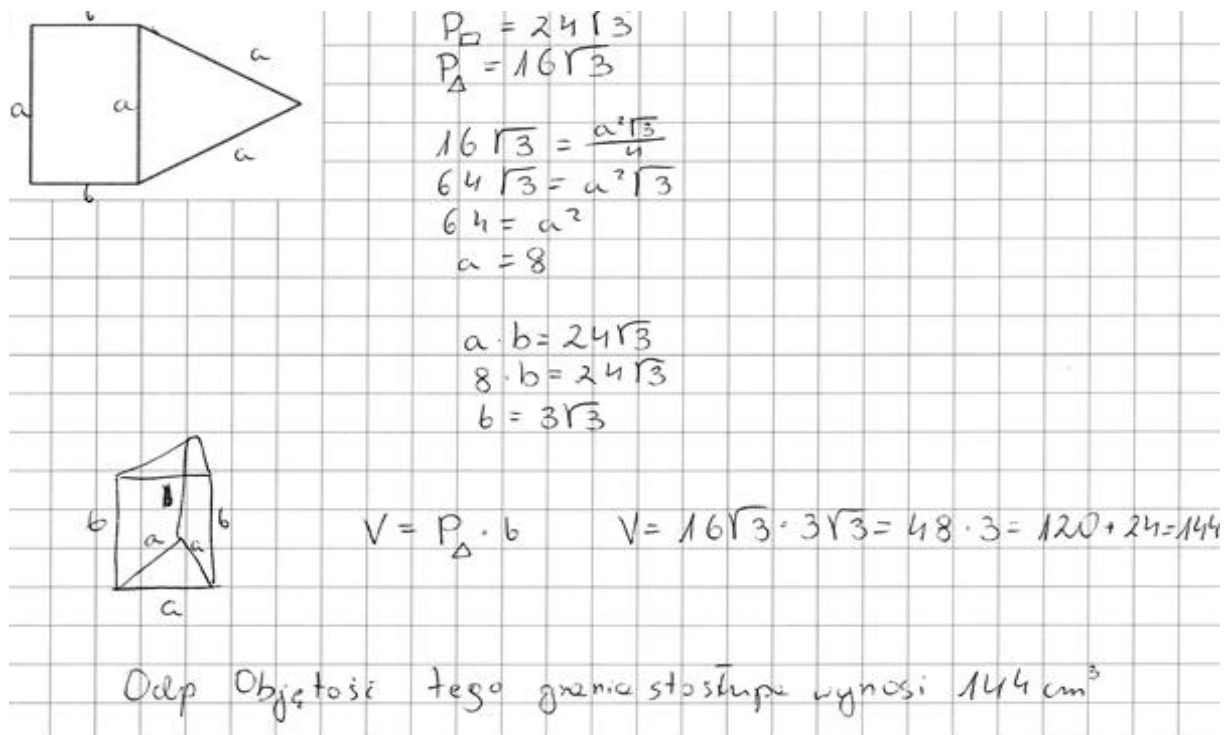 b
a
a
a
a
b
P□ = 24√3
P△ = 16√3
16√3 = a²√3/4
64√3 = a²√3
64 = a²
a = 8
a · b = 24√3
8 · b = 24√3
b = 3√3
b
b
b
a
a
a
V = P△ · b V = 16√3 · 3√3 = 48 · 3 = 120 + 24 = 144
Odp Objętość tego graniastosłupa wynosi 144 cm³